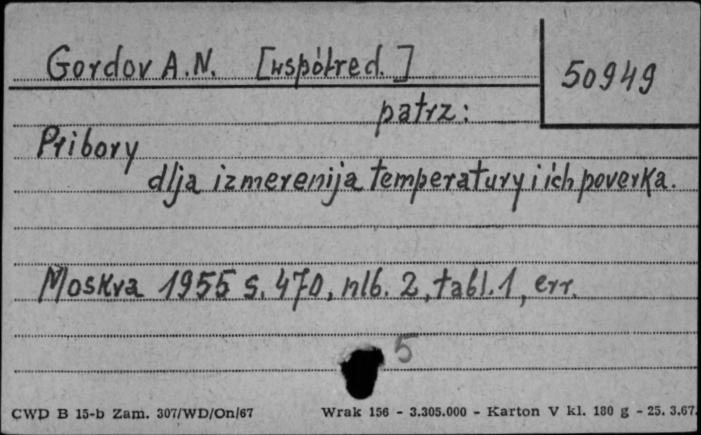 Gordov A.N. [współred.]
50949
patrz:
Pribory
dlja izmerenija temperatury i ich poverka.
Moskva 1955 s. 470, nlb. 2, tabl. 1, err.
5
CWD B 15-b Zam. 307/WD/On/67 Wrak 156 - 3.305.000 - Karton V kl. 180 g - 25. 3.67.